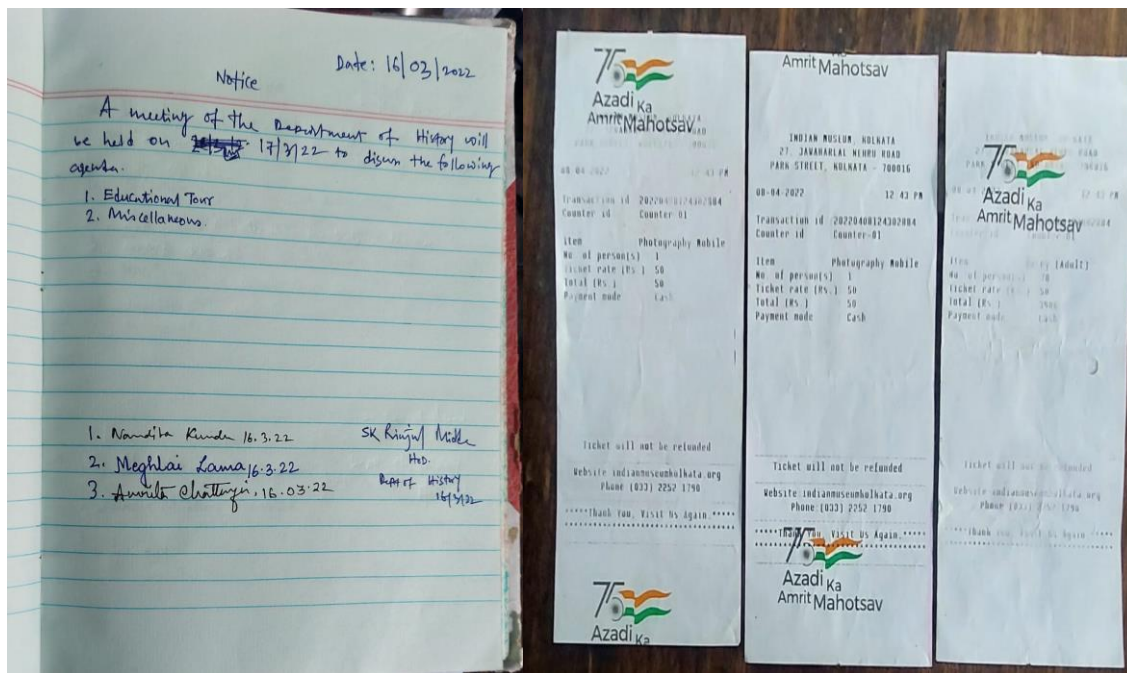 Date: 16/03/2022
Notice
A meeting of the Department of History will
be held on 17/3/22 to discuss the following
agenda.
1. Educational Tour
2. Miscellaneous.
1. Nandita Kundu 16.3.22
2. Meghlai Lama 16.3.22
3. Amrita Chatterjee. 16.03.22
SK
HoD.
Dept of History
16/3/22
75
Azadi Ka
Amrit Mahotsav
08 04 2022 12 43 PM
Transaction id 20220408124302084
Counter id Counter 01
Item Photography Mobile
No of person(s) 1
Ticket rate (Rs.) 50
Total (Rs.) 50
Payment mode Cash
Ticket will not be refunded
Website indianmuseumkolkata.org
Phone (033) 2252 1790
*****Thank You, Visit Us Again.*****
75
Azadi Ka
Amrit Mahotsav
INDIAN MUSEUM, KOLKATA
27, JAWAHARLAL NEHRU ROAD
PARK STREET, KOLKATA - 700016
08-04-2022 12 43 PM
Transaction id 20220408124302084
Counter id Counter-01
Item Photography Mobile
No. of person(s) 1
Ticket rate (Rs.) 50
Total (Rs.) 50
Payment mode Cash
Ticket will not be refunded
Website:indianmuseumkolkata.org
Phone (033) 2252 1790
*****Thank You, Visit Us Again.*****
75
Azadi Ka
Amrit Mahotsav
75
Azadi Ka
Amrit Mahotsav
12 43 PM
Item Entry (Adult)
No of person(s)
Ticket rate (Rs.) 50
Total (Rs.)
Payment mode Cash
Ticket will not be refunded
Website indianmuseumkolkata.org
Phone (033) 2252 1790
Thank You, Visit Us Again